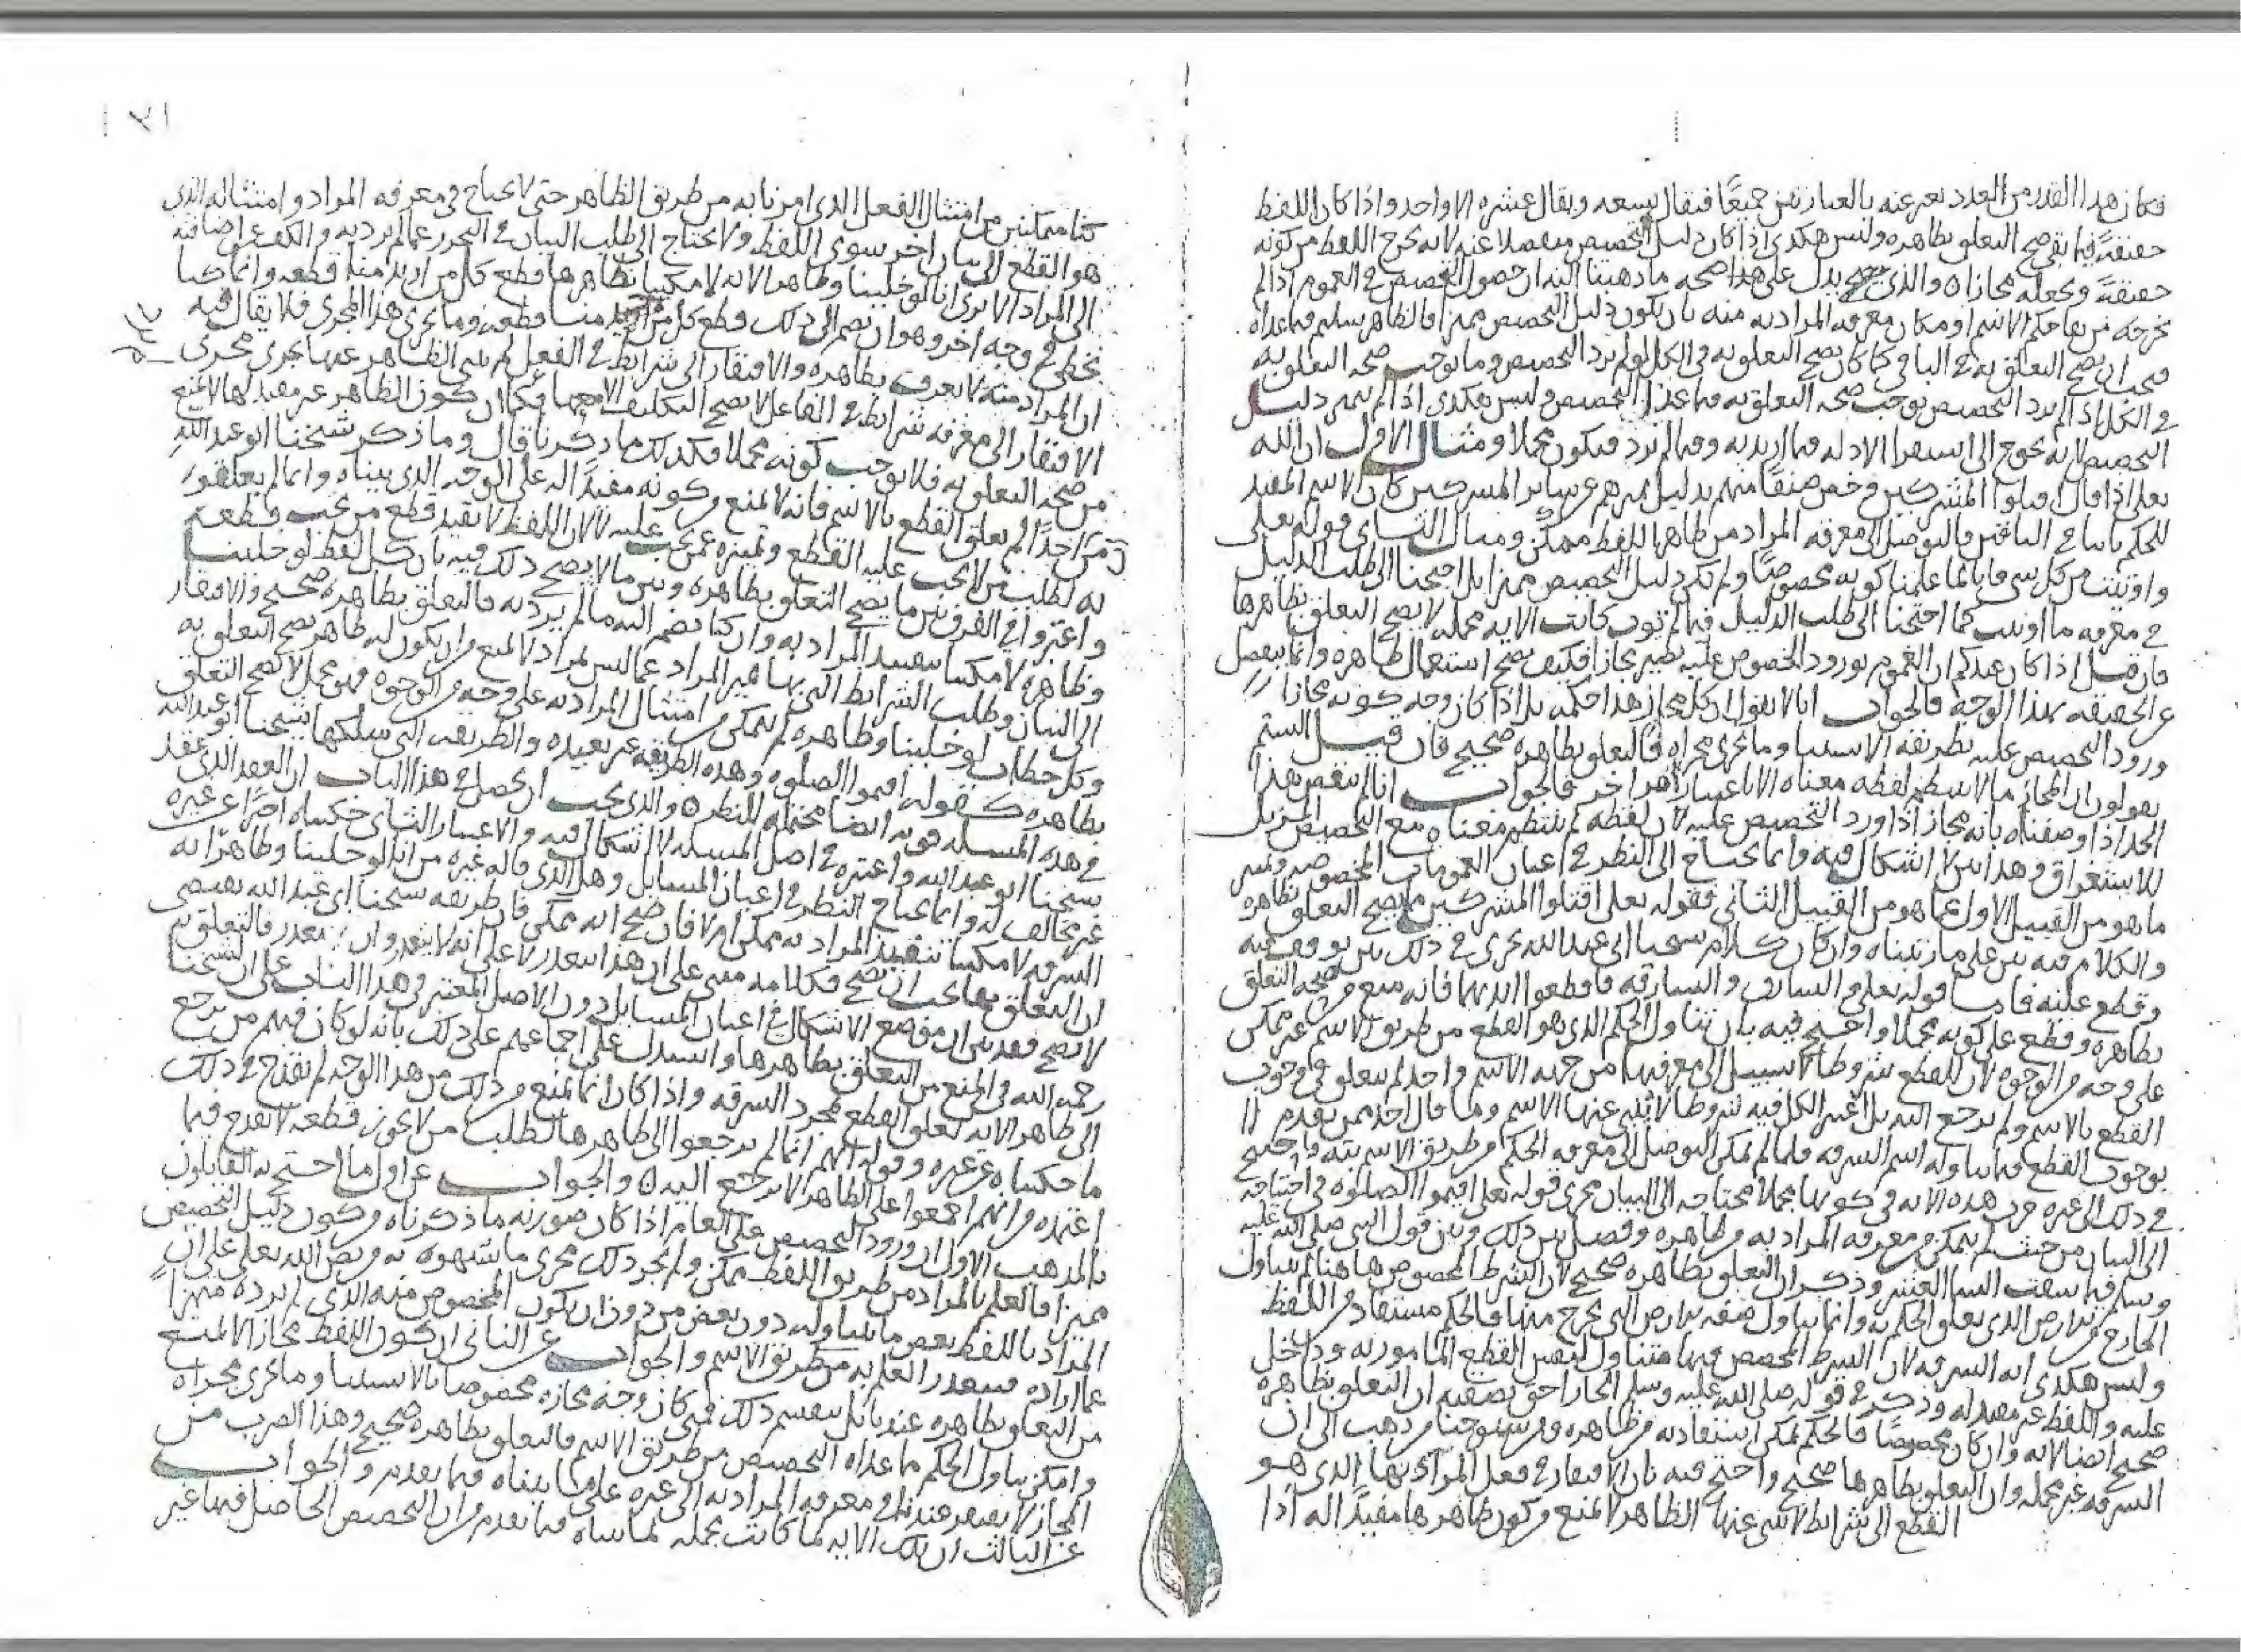 فكان هذا القدر من العدد يعبر عنه بالعبارتين جميعًا فيقال تسعه ويقال عشره الا واحد واذا كان اللفظ
حقيقةً فيما بقي صح التعلق بظاهره وليس هكدى اذا كان دليل التخصيص منفصلا عنه لانه يخرج اللفظ من كونه
حقيقةً ويجعله مجازا والذي يدل على هذا صحه ما ذهبنا اليه ان حصول التخصيص في العموم اذا لم
يخرجه من بقا حكم الاسم وامكان معرفه المراد به منه بان يكون دليل التخصيص مميزا فالظاهر سليم فيما عداه
فيجب ان يصح التعلق به في الباقي كما كان يصح التعلق به في الكل لو لم يرد التخصيص وما يوجب صحه التعلق به
في الكل اذا لم يرد التخصيص يوجب صحه التعلق به فيما عدا التخصيص وليس هكدى اذا لم يتميز دليل
التخصيص لانه يحوج الى استقرا الادله فيما اريد به وفيما لم يرد فيكون مجملا ومثال الاول ان الله
تعلى اذا قال اقتلوا المشركين وخص صنفًا منهم بدليل يميزهم عن ساير المشركين كان الاسم المفيد
للحكم ثابتا في الباقين والتوصل الى معرفه المراد من ظاهر اللفظ ممكن ومثال الثاني قوله تعلى
واوتيت من كل شي فانا لما علمنا كونه مخصوصًا ولم يكن دليل التخصيص مميزا بل احتجنا الى طلب الدليل
في معرفه ما اوتيت كما احتجنا الى طلب الدليل فيما لم توت كانت الايه مجمله لا يصح التعلق بظاهرها
فان قيل اذا كان عندكم ان العموم بورود الخصوص عليه يصير مجازا فكيف يصح استعمال ظاهره وانما ينفصل
عن الحقيقه بهذا الوجه فالجواب انا لا نقول ان كل مجاز هذا حكمه بل اذا كان وجه كونه مجازا
ورود التخصيص عليه بطريقه الاستثنا وما يجري مجراه فالتعلق بظاهره صحيح فان قيل الستم
تقولون ان المجاز ما لا ينتظم لفظه معناه الا باعتبار امر اخر فالجواب انا لم ننقض هذا
الحد اذا وصفناه بانه مجاز اذا ورد التخصيص عليه لان لفظه لم ينتظم معناه مع التخصيص المزيل
للاستغراق وهذا بين لا اشكال فيه وانما يحتاج الى النظر في اعيان العمومات المخصوصه وتميز
ما هو من القبيل الاول عما هو من القبيل الثاني فقوله تعلى اقتلوا المشركين مما يصح التعلق بظاهره
والكلام فيه بين على ما بيناه وان كان كلام شيخنا ابي عبد الله يجري في ذلك بين توقف فيه
وقطع عليه فاما قوله تعلى والسارق والسارقه فاقطعوا ايديهما فانه منع من صحه التعلق
بظاهره وقطع على كونه مجملا واحتج فيه بان تناول الحكم الذي هو القطع من طريق الاسم غير ممكن
على وجه من الوجوه لان للقطع شروطا لا سبيل الى معرفتها من جهه الاسم واحد لم يعلق في وجوب
القطع بالاسم ولم يرجع اليه بل اعتبر الكل فيه شروطا لا ينبي عنها الاسم وما قال احد ممن تقدم
بوجوب القطع فيما يتناوله اسم السرقه فلما لم يمكن التوصل الى معرفه الحكم من طريق الاسم واحتيج
في ذلك الى غيره جرت هذه الايه في كونها مجملا محتاجه الى البيان مجرى قوله تعلى اقيموا الصلوه في احتياجه
الى البيان من حيث لم يتمكن من معرفه المراد به من ظاهره وفصل بين ذلك وبين قول النبي صلى الله عليه
وسلم فيما سقت السما العشر وذكر ان التعلق بظاهره صحيح لان الشرط المخصوص هاهنا لم يتناول
الخارج من الارض الذي تعلق الحكم به وانما يتناول صفه الارض التي يخرج منها فالحكم مستفاد من اللفظ
وليس هكدى ايه السرقه لان الشرط المخصص فيها متناول لنفس القطع المامور به وداخل
عليه واللفظ غير مفيد له وذكر في قوله صلى الله عليه وسلم الجار احق بصقبه ان التعلق بظاهره
صحيح ايضا لانه وان كان مخصوصًا فالحكم يمكن استفادته من ظاهره ومن شيوخنا من ذهب الى ان ايه
السرقه غير مجمله وان التعلق بظاهرها صحيح واحتج فيه بان الافتقار في فعل المراد بها الذي هو
القطع الى شرايط لا ينبي عنها الظاهر لا يمنع من كون ظاهرها مفيدًا له اذا
كنا متمكنين من امتثال الفعل الذي امرنا به من طريق الظاهر حتى لا يحتاج في معرفه المراد وامتثاله الذي
هو القطع الى بيان اخر سوى اللفظ ولا يحتاج الى طلب البيان في التحرز عما لم يرد به والكف عن اضافته
الى المراد الا ترى انا لو خلينا وظاهر الايه لامكننا بظاهرها قطع كل من اريد منا قطعه وانما كنا
نخطي في وجه اخر وهو ان نضم الى ذلك قطع كل من لم يرد منا قطعه وما يجري هذا المجرى فلا يقال فيه
ان المراد منه لا يعرف بظاهره والافتقار الى شرايط في الفعل لم ينبي الظاهر عنها يجري مجرى
الافتقار الى معرفه شرايط في الفاعل لا يصح التكليف الا معها فكما ان كون الظاهر غير مفيد لها لا يمنع
من صحه التعلق به فلا يوجب كونه مجملا فكذلك ما ذكرنا قال وما ذكر شيخنا ابو عبد الله
من ان احدًا لم يعلق القطع بالاسم فانه لا يمنع من كونه مفيدًا له على الوجه الذي بيناه وانما لم يعلقوا
به لطلب من لا يجب عليه القطع وتميزه عمن يجب عليه لا لان اللفظ لا يفيد قطع من يجب قطعه
واعتبروا في الفرق بين ما يصح التعلق بظاهره وبين ما لا يصح ذلك فيه بان كل لفظ لو خلينا
وظاهره لامكننا تنفيذ المراد به وان كنا نضم اليه ما لم يرد به فالتعلق بظاهره صحيح والافتقار
الى البيان وطلب الشرايط التي بها يميز المراد عما ليس بمراد لا يمنع من ان يكون له ظاهر يصح التعلق به
وكل خطاب لو خلينا وظاهره لم نتمكن من امتثال المراد به على وجه من الوجوه فهو مجمل لا يصح التعلق
بظاهره كقوله اقيموا الصلوه وهذه الطريقه غير بعيده والطريقه التي سلكها شيخنا ابو عبد الله
في هذه المسله قويه ايضا محتمله للنظر والذي يجب ان يحصل في هذا الباب ان العقد الذي عقد
شيخنا ابو عبد الله واعتبره في اصل المسله لا اشكال فيه والاعتبار الثاني حكيناه اخرًا عن غيره
غير مخالف له وانما يحتاج النظر في اعيان المسايل وهل الذي قاله غيره من انا لو خلينا وظاهر ايه
السرقه لامكننا تنفيذ المراد به ممكن ام لا فان صح انه ممكن فان طريقه شيخنا ابي عبد الله تقتضي
ان التعلق بها يجب ان يصح فكلامه مبني على ان هذا يتعذر لا على انه لا يتعذر وان لم يتعذر فالتعلق به
لا يصح فقد تبين ان موضع الاشكال في اعيان المسايل دون الاصل المعتبر في هذا الباب على ان لشيخنا
رحمه الله في المنع من التعلق بظاهرها واستدل على اجماعهم على ذلك بانه لو كان فيهم من يرجع
الى ظاهر الايه لعلق القطع بمجرد السرقه واذا كان انما يمنع من ذلك من هذا الوجه لم يقدح في ذلك
ما حكيناه عن غيره وقوله انهم انما لم يرجعوا الى ظاهرها لطلب من لا يجوز قطعه لا يقدح فيما
اعتمده من انهم اجمعوا على ان الظاهر لا يرجع اليه والجواب عن اول ما احتج به القايلون
بالمذهب الاول ان ورود التخصيص على العام اذا كان صورته ما ذكرناه من كون دليل التخصيص
مميزا فالعلم بالمراد من طريق اللفظ ممكن ولم يجر ذلك مجرى ما شبهوه به من نص الله تعلى على ان
المراد باللفظ بعض ما يتناوله دون بعض من دون ان يكون المخصوص منه الذي لم يرده مميزا
عما اراده فيتعذر العلم به من طريق الاسم والجواب عن الثاني ان كون اللفظ مجازا لا يمنع
من التعلق بظاهره عندنا بل ينقسم ذلك فمتى كان وجه مجازه مخصوصا بالاستثنا وما يجري مجراه
وامكن تناول الحكم ما عداه التخصيص من طريق الاسم فالتعلق بظاهره صحيح وهذا الضرب من
المجاز لا يفتقر عندنا في معرفه المراد به الى غيره على ما بيناه فيما تقدم والجواب
عن الثالث ان تلك الايه لما كانت مجمله لما بيناه فيما تقدم من ان التخصيص الحاصل فيها غير